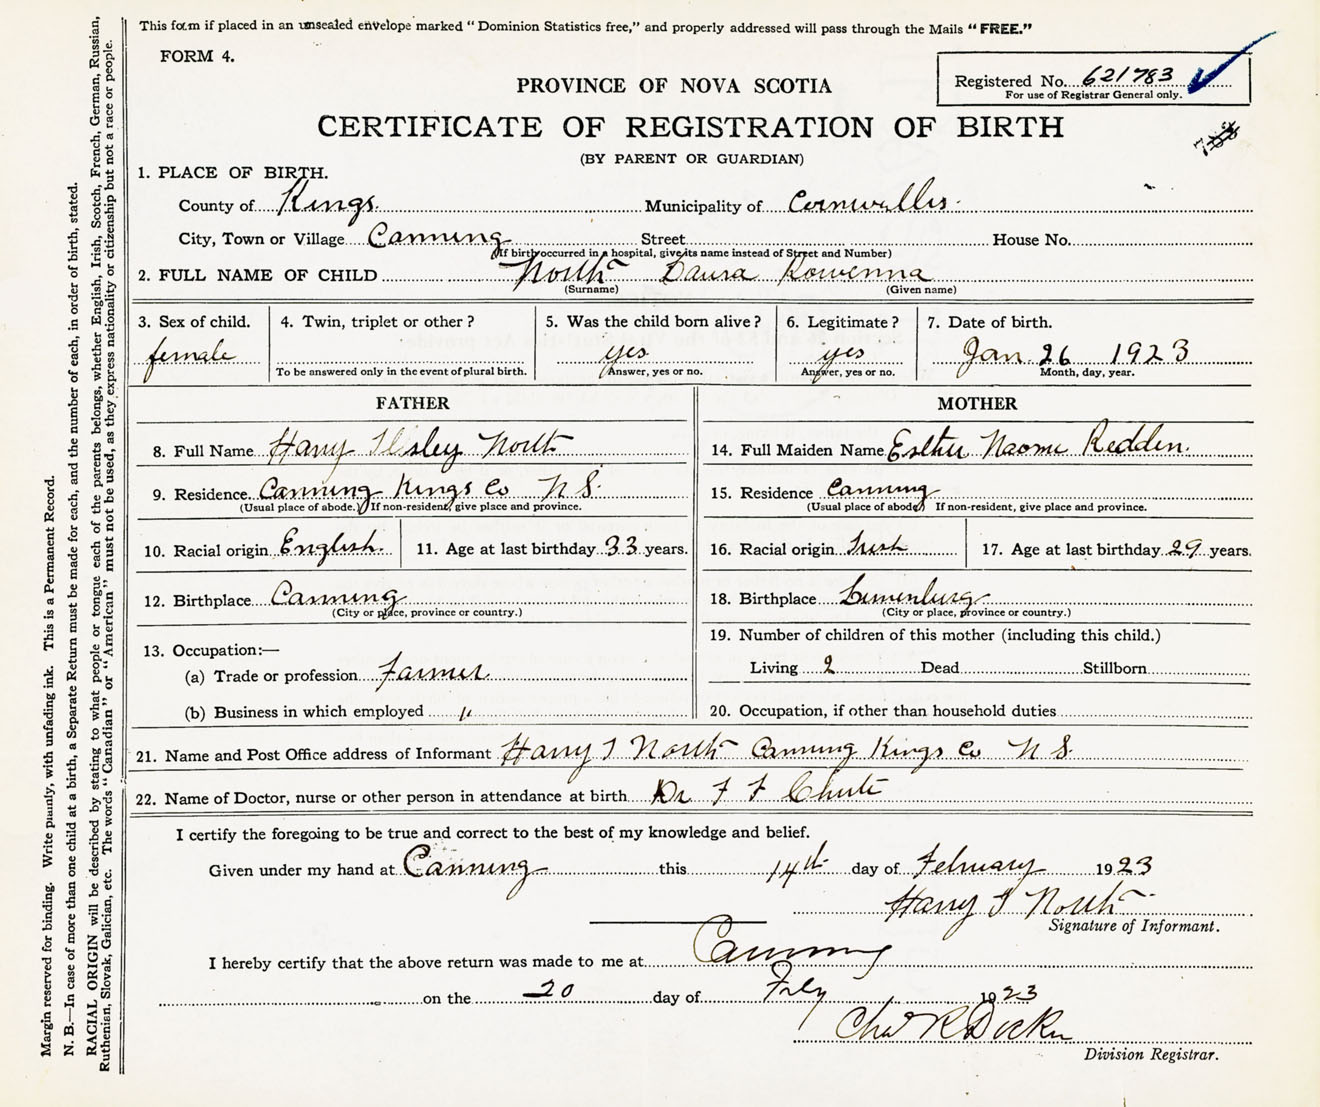 This form if placed in an unsealed envelope marked "Dominion Statistics free," and properly addressed will pass through the Mails "FREE."
FORM 4.
Registered No. 621783
For use of Registrar General only.
PROVINCE OF NOVA SCOTIA
CERTIFICATE OF REGISTRATION OF BIRTH
783
(BY PARENT OR GUARDIAN)
1. PLACE OF BIRTH.
County of Kings. Municipality of Cornwallis.
City, Town or Village Canning Street House No.
(If birth occurred in a hospital, give its name instead of Street and Number)
2. FULL NAME OF CHILD North Laura Rowenna
(Surname) (Given name)
3. Sex of child. 4. Twin, triplet or other? 5. Was the child born alive? 6. Legitimate? 7. Date of birth.
female yes yes Jan 26 1923
To be answered only in the event of plural birth. Answer, yes or no. Answer, yes or no. Month, day, year.
FATHER
8. Full Name Harry Ilsley North
9. Residence. Canning Kings Co N S.
(Usual place of abode.) If non-resident, give place and province.
10. Racial origin English. 11. Age at last birthday 33 years.
12. Birthplace Canning
(City or place, province or country.)
13. Occupation:—
(a) Trade or profession Farmer
(b) Business in which employed "
MOTHER
14. Full Maiden Name Esther Naomi Redden.
15. Residence Canning
(Usual place of abode) If non-resident, give place and province.
16. Racial origin Irish 17. Age at last birthday 29 years.
18. Birthplace Lunenburg
(City or place, province or country.)
19. Number of children of this mother (including this child.)
Living 2 Dead Stillborn
20. Occupation, if other than household duties
21. Name and Post Office address of Informant Harry I North Canning Kings Co N S.
22. Name of Doctor, nurse or other person in attendance at birth Dr F F Chute
I certify the foregoing to be true and correct to the best of my knowledge and belief.
Given under my hand at Canning this 14th day of February 1923
Harry I North
Signature of Informant.
I hereby certify that the above return was made to me at Canning
on the 20 day of Feby 1923
Chas R Dockn
Division Registrar.
Margin reserved for binding. Write plainly, with unfading ink. This is a Permanent Record.
N. B.—In case of more than one child at a birth, a Separate Return must be made for each, and the number of each, in order of birth, stated.
RACIAL ORIGIN will be described by stating to what people or tongue each of the parents belongs, whether English, Irish, Scotch, French, German, Russian,
Ruthenian, Slovak, Galician, etc. The words "Canadian" or "American" must not be used, as they express nationality or citizenship but not a race or people.